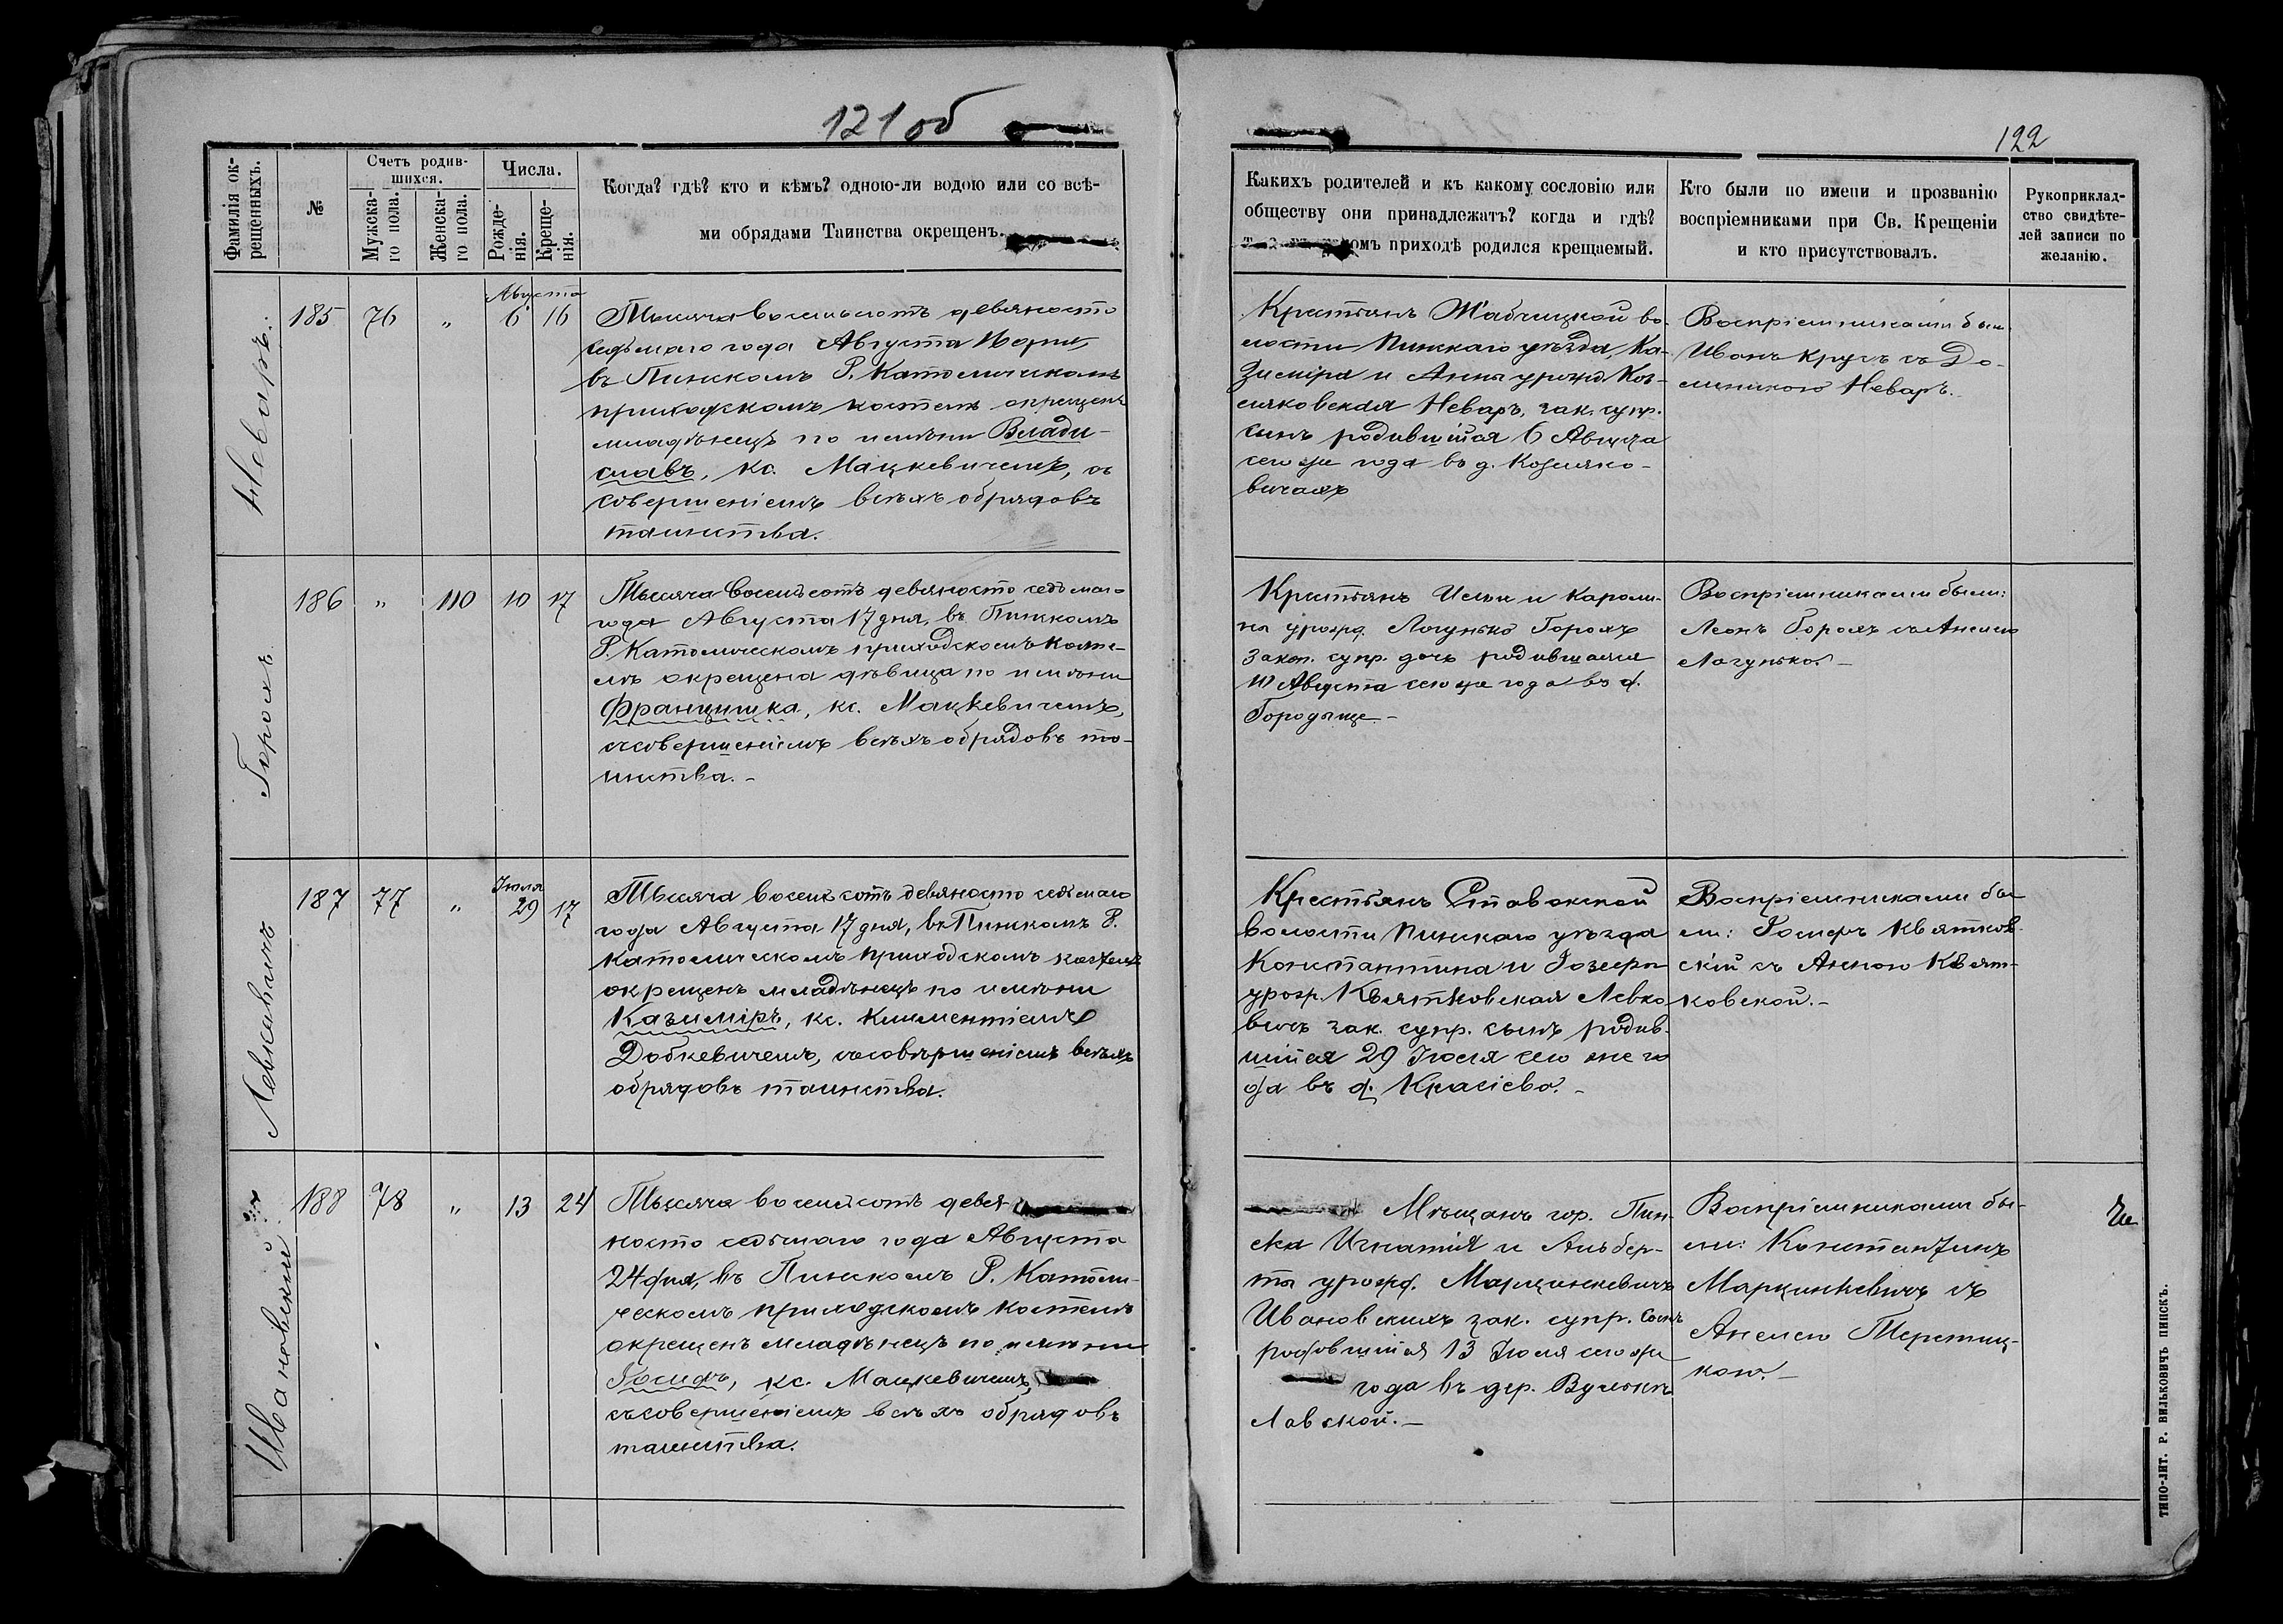 121 об
122
Фамилія ок-
рещенныхъ.
№
Счетъ родив-
шихся.
Мужска-
го пола.
Женска-
го пола.
Числа.
Рожде-
нія.
Креще-
нія.
Когда? гдѣ? кто и кѣмъ? одною-ли водою или со всѣ-
ми обрядами Таинства окрещенъ.
Какихъ родителей и къ какому сословію или
обществу они принадлежатъ? когда и гдѣ?
приходѣ родился крещаемый.
Кто были по имени и прозванію
воспріемниками при Св. Крещеніи
и кто присутствовалъ.
Рукоприклад-
ство свидѣте-
лей записи по
желанію.
Неваръ
185
76
"
Августа
6
16
Тысяча восемьсотъ девяносто
седьмаго года Августа 16 дня,
въ Пинскомъ Р. Католическомъ
приходскомъ костелѣ окрещенъ
младѣнецъ по имѣни Влади-
славъ, кс. Мацкевичемъ, съ
совершеніемъ всѣхъ обрядовъ
таинства.
Крестьянъ Жабчицкой во-
лости Пинскаго уѣзда, Ка-
зиміра и Анны урожд.
Неваръ, зак. супр.
сынъ родившійся 6 Августа
сего же года въ д. Козляко-
вичахъ
Воспріемниками были
Иванъ Кругъ съ До-
миникою Неваръ.
Горохъ
186
"
110
10
17
Тысяча восемьсотъ девяносто седьмаго
года Августа 17 дня, въ Пинскомъ
Р. Католическомъ приходскомъ косте-
лѣ окрещена дѣвица по имѣни
Францишка, кс. Мацкевичемъ,
съ совершеніемъ всѣхъ обрядовъ та-
инства.-
Крестьянъ и Кароли-
ны урожд. Логунько Горохъ
закон. супр. дочь родившаяся
10 Августа сего же года въ д.
Городыще.-
Воспріемниками были:
Леонъ Горохъ съ Анелею
Логунько.-
Левковичъ
187
77
"
Іюля
29
17
Тысяча восемьсотъ девяносто седьмаго
года Августа 17 дня, въ Пинскомъ Р.
Католическомъ приходскомъ костелѣ
окрещенъ младѣнецъ по имѣни
Казиміръ, кс. Климентіемъ
Добкевичемъ, съ совершеніемъ всѣхъ
обрядовъ таинства.
Крестьянъ Ставокской
волости Пинскаго уѣзда
Константина и Іозефы
урожд. Квятковская Левко
вичъ зак. супр. сынъ родив-
шійся 29 Іюля сего же го
да въ д. Красіево.-
Воспріемниками бы
ли: Іосифъ Квятков-
скій съ Анною Квят-
ковской.-
Ивановскій
188
78
"
13
24
Тысяча восемьсотъ девя-
носто седьмаго года Августа
24 дня, въ Пинскомъ Р. Католи-
ческомъ приходскомъ костелѣ
окрещенъ младѣнецъ по имѣни
Іосифъ, кс. Мацкевичемъ,
съ совершеніемъ всѣхъ обрядовъ
таинства.
Мѣщанъ гор. Пин-
ска Игнатія и Альбер-
ты урожд. Марцинкевичъ
Ивановскихъ зак. супр. сынъ
родившійся 13 Іюля сего же
года въ дер.
Лавской.-
Воспріемниками бы-
ли: Константинъ
Марцинкевичъ съ
Анелею
кою.-
ТИПО-ЛИТ. Р. ВИЛЬКОВИЧЪ ПИНСКЪ.